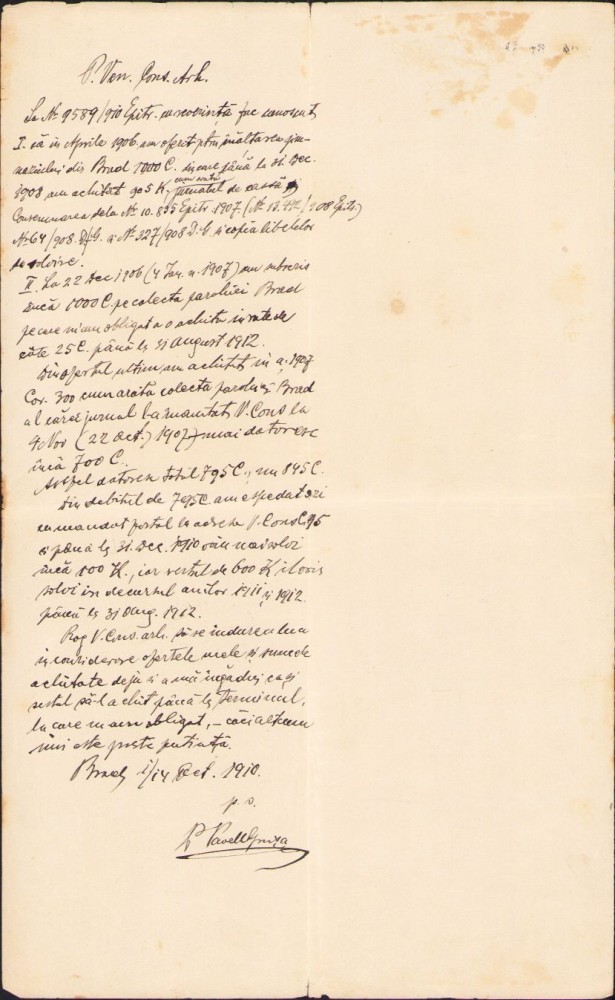 P. Ven. Cons. Arh.
La Nr. 9589/910 Epitr. cu reverință fac cunoscut,
I. că în Aprilie 1906 am oferit ptru înălțarea gim-
naziului din Brad 1000 C. din care până la 31. Dec.
1908 am achitat 905 K, cum arată jurnalul de cassă și
Consemnarea dela Nr. 10.835 Epitr. 1907 (Nr. 13. /908 Epitr.)
Nr 64/908. D.G. și Nr 327/908 D.G. și copia libelelor
de solvire.
II. La 22 Dec 1906 (4 Ian. a. 1907) am subscris
încă 1000 C. pe colecta parohiei Brad
pe care mi-am obligat a o achita în rate de
câte 25 C. până la 31 August 1912.
Din ofertul ultim am achitat, în a. 1907
Cor. 300 cum arată colecta parohiei Brad
al cărei jurnal l-am înaintat V. Cons la
4 Nov (22 Oct.) 1907, – mai datoresc
încă 700 C.
Astfel datoresc total 795 C., nu 845 C.
Din debitul de 795 C am espedat azi
cu mandat postal la adresa V. Cons C. 95
și până la 31. Dec. 1910 voiu mai solvi
încă 100 K., iar restul de 600 K îl voiu
solvi în decursul anilor 1911 și 1912
până la 31 Aug. 1912.
Rog V. Cons. arh. să se îndure a lua
în considerare ofertele mele și sumele
achitate deja și a mă îngădui ca și
restul să-l achit până la terminul,
la care m-am obligat, – căci altcum
îmi este peste putință.
Brad, 1/14 Oct. 1910.
p. s.
P Pavel